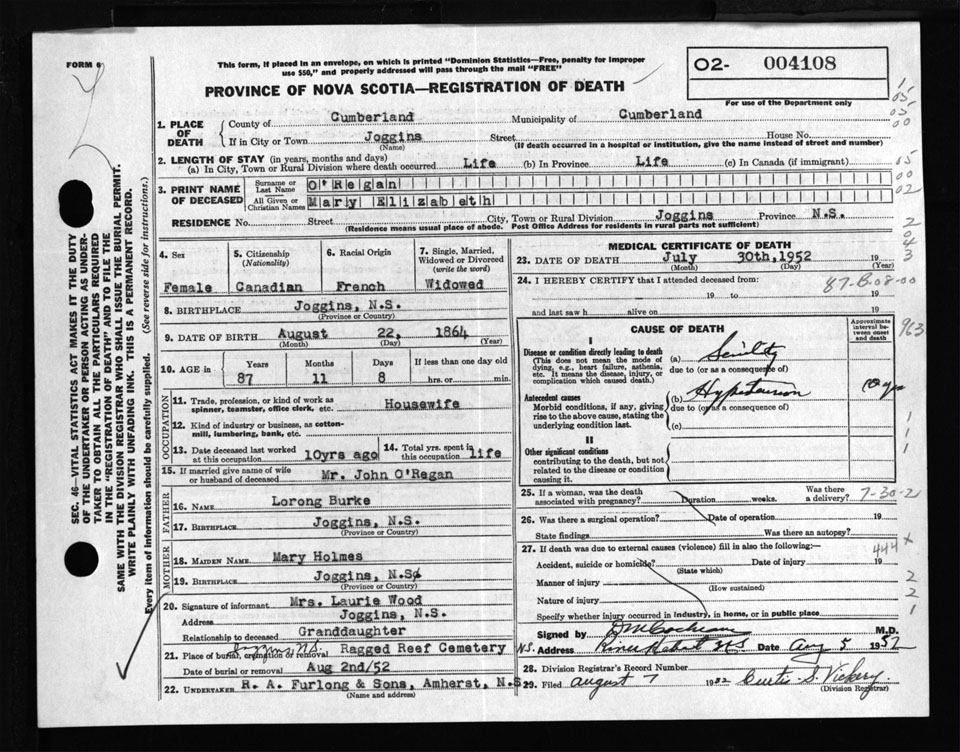 FORM 6
This form, if placed in an envelope, on which is printed "Dominion Statistics—Free, penalty for improper
use $50," and properly addressed will pass through the mail "FREE"
O2- 004108
For use of the Department only
PROVINCE OF NOVA SCOTIA—REGISTRATION OF DEATH
1. PLACE OF DEATH
County of Cumberland Municipality of Cumberland
If in City or Town Joggins Street House No.
(Name) (If death occurred in a hospital or institution, give the name instead of street and number)
2. LENGTH OF STAY (in years, months and days)
(a) In City, Town or Rural Division where death occurred Life (b) In Province Life (c) In Canada (if immigrant)
3. PRINT NAME OF DECEASED
Surname or Last Name O'Regan
All Given or Christian Names Mary Elizabeth
RESIDENCE No. Street City, Town or Rural Division Joggins Province N.S.
(Residence means usual place of abode. Post Office Address for residents in rural parts not sufficient)
4. Sex Female
5. Citizenship (Nationality) Canadian
6. Racial Origin French
7. Single, Married, Widowed or Divorced (write the word) Widowed
8. BIRTHPLACE Joggins, N.S.
(Province or Country)
9. DATE OF BIRTH August 22, 1864
(Month) (Day) (Year)
10. AGE in Years Months Days If less than one day old
87 11 8 hrs. or min.
OCCUPATION
11. Trade, profession, or kind of work as
spinner, teamster, office clerk, etc. Housewife
12. Kind of industry or business, as cotton-
mill, lumbering, bank, etc.
13. Date deceased last worked
at this occupation 10yrs ago
14. Total yrs. spent in
this occupation life
15. If married give name of wife
or husband of deceased Mr. John O'Regan
FATHER
16. Name Lorong Burke
17. Birthplace Joggins, N.S.
(Province or Country)
MOTHER
18. Maiden Name Mary Holmes
19. Birthplace Joggins, N.S.
(Province or Country)
20. Signature of informant Mrs. Laurie Wood
Address Joggins, N.S.
Relationship to deceased Granddaughter
21. Place of burial, cremation or removal Joggins, N.S. Ragged Reef Cemetery
Date of burial or removal Aug 2nd/52
22. Undertaker R. A. Furlong & Sons, Amherst, N.S.
(Name and address)
MEDICAL CERTIFICATE OF DEATH
23. DATE OF DEATH July 30th, 1952
(Month) (Day) (Year)
24. I HEREBY CERTIFY that I attended deceased from:
19 to 19
and last saw h alive on 19
CAUSE OF DEATH
Approximate interval between onset and death
I
Disease or condition directly leading to death
(This does not mean the mode of
dying, e.g., heart failure, asthenia,
etc. It means the disease, injury, or
complication which caused death.)
(a) Senility
due to (or as a consequence of)
Antecedent causes
Morbid conditions, if any, giving
rise to the above cause, stating the
underlying condition last.
(b) Hypertension 10 yrs
due to (or as a consequence of)
(c)
II
Other significant conditions
contributing to the death, but not
related to the disease or condition
causing it.
25. If a woman, was the death
associated with pregnancy? Duration weeks. Was there a delivery?
26. Was there a surgical operation? Date of operation 19
State findings Was there an autopsy?
27. If death was due to external causes (violence) fill in also the following:—
Accident, suicide or homicide? Date of injury 19
(State which)
Manner of injury
(How sustained)
Nature of injury
Specify whether injury occurred in industry, in home, or in public place
Signed by M. Cochrane M.D.
N.S. Address River Hebert N.S. Date Aug 5 1952
28. Division Registrar's Record Number
29. Filed August 7 1952 Curtis S. Vickery
(Division Registrar)
SEC. 46—VITAL STATISTICS ACT MAKES IT THE DUTY
OF THE UNDERTAKER OR PERSON ACTING AS UNDER-
TAKER TO OBTAIN ALL THE PARTICULARS REQUIRED
IN THE "REGISTRATION OF DEATH" AND TO FILE THE
SAME WITH THE DIVISION REGISTRAR WHO SHALL ISSUE THE BURIAL PERMIT.
WRITE PLAINLY WITH UNFADING INK. THIS IS A PERMANENT RECORD.
Every item of information should be carefully supplied. (See reverse side for instructions.)
87-B.08-00
963
7-30-2
444 x
1
05
05
00
05
00
02
2
0
4
3
1
1
1
2
2
1